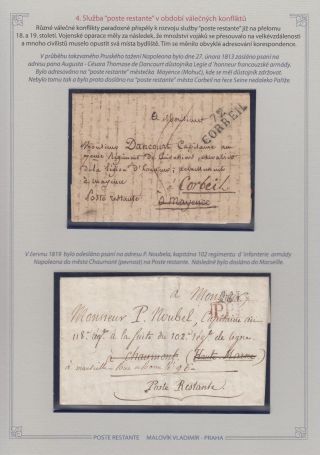 4. Služba "poste restante" v období válečných konfliktů
Různé válečné konflikty paradoxně přispěly k rozvoju služby "poste restante" již na přelomu
18. a 19. století. Vojenské operace měly za následek, že množství vojáků se přesouvalo na velkévzdálenosti
a mnoho civilistů muselo opustit svá místa bydliště. Tím se měnilo obvyklé adresování korespondence.
V průběhu takzvaného Pruského tažení Napoleona bylo dne 27. února 1813 zasláno psaní na
adresu pana Augusta - César Thomase de Dancourt důstojníka Legie d´honneur francouzské armády.
Bylo adresováno na "poste restante" městečka Mayence (Mohuč), kde se měl důstojník zdržovat.
Nebylo tomu tak a bylo proto dosláno na "poste restante" města Corbeil na řece Seine nedaleko Paříže.
a Monsieur
72
CORBEIL
Monsieur Dancourt Capitaine au
régiment de
de la légion d'honneur
de mayence
Corbeil
Poste restante
à Mayence
V červnu 1819 bylo odesláno psaní na adresu P. Noubela, kapitána 102 regimentu d´infanterie armády
Napoleona do města Chaumont (pevnost) na Poste restante. Následně bylo dosláno do Marseille.
à Mon
Monsieur P. Noubel, Capitaine au
à la suite du 102e rég. de ligne
à Chaumont (Haute Marne)
à marseille
Poste Restante
POSTE RESTANTE MALOVÍK VLADIMÍR - PRAHA